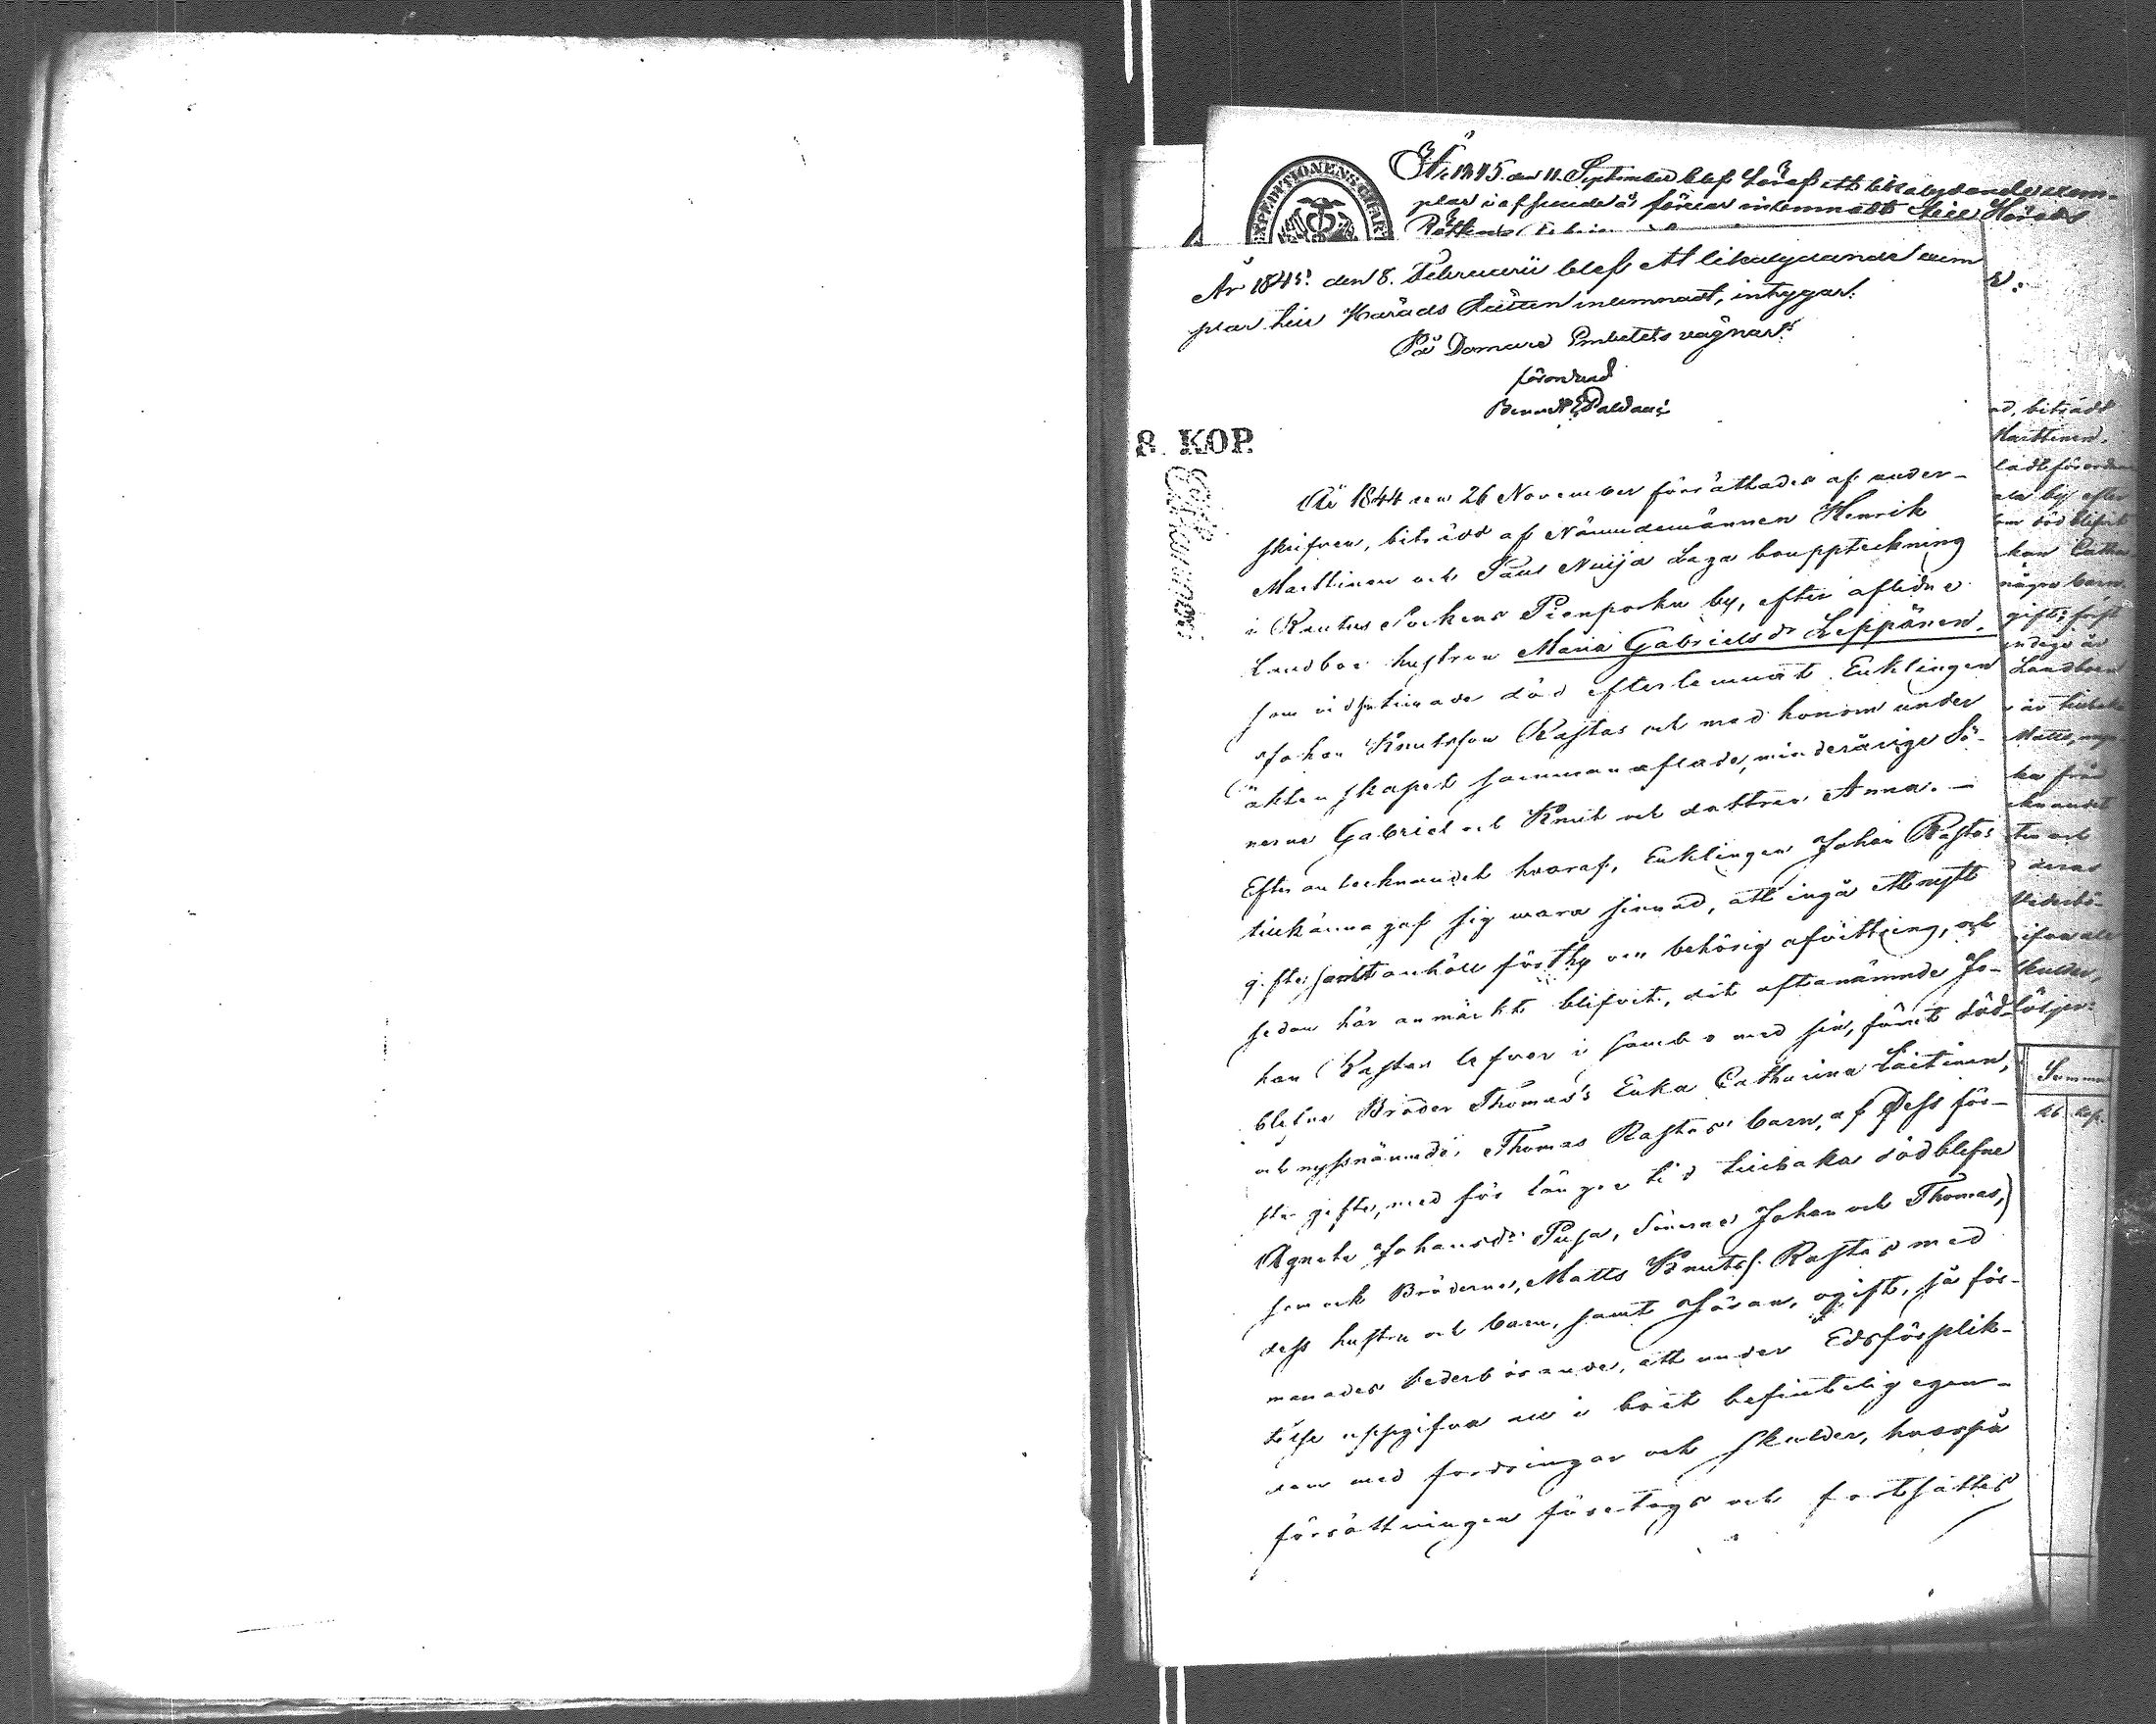 År 1845 den 11. September blef häraf ett likalydande exem-
plar i afseende å förvar inlemnadt till Härads
Rättens
EXPEDITIONENS CHART
År 1845 den 8. Februarii blef ett likalydande exem
plar till Härads Rätten inlemnadt, intygar.
På Domare Embetets vägnar:
förordnad
8. KOP.
År 1844 den 26 November förrättades af under-
skrifven, biträdd af Nämndemännen Henrik
Marttinen och Paul Nuija Laga bouppteckning
i Rautus Sockens Pienporku by, efter aflidne
Landboe hustrun Maria Gabrielsdr Leppänen.
som vid sin timade död efterlemnat Enklingen
Johan Knutsson Rastas och med honom under
äktenskapet sammanaflade, minderårige Sö-
nerne Gabriel och Knut och dottren Anna. —
Efter antecknandet hvaraf, Enklingen Johan Rastas
tillkänna gaf sig vara sinnad, att ingå ett nytt
gifte, samt anhöll för thy om behörig afvittring, och
sedan här anmärkt blifvit, det oftanämnde Jo-
han Rastas lefver i sambo med sin, förut död-
blefne Broder Thomas's Enka Catharina Laitinen,
och nyssnämnde Thomas Rastas' barn, af Dess för-
sta gifte, med för längre tid tillbaka dödblefne
Agneta Johansdr Pusa, Sönerne Johan och Thomas,
som ock Bröderne, Matts Knutss. Rastas med
dess hustru och barn, samt Jöran, ogift, så för-
manades vederbörande, att under Edsförplik-
telse uppgifva all i boet befintelig egen-
dom med fordringar och skulder, hvarpå
förrättningen företogs och fortsattes
biträdt
Marttinen.
by efter
död blifvit
några barn
gift; först
Landboen
är tillbaka
Matts,
ka från
och
deras
Vederbö-
skulder,
följer:
Summa
Kop.